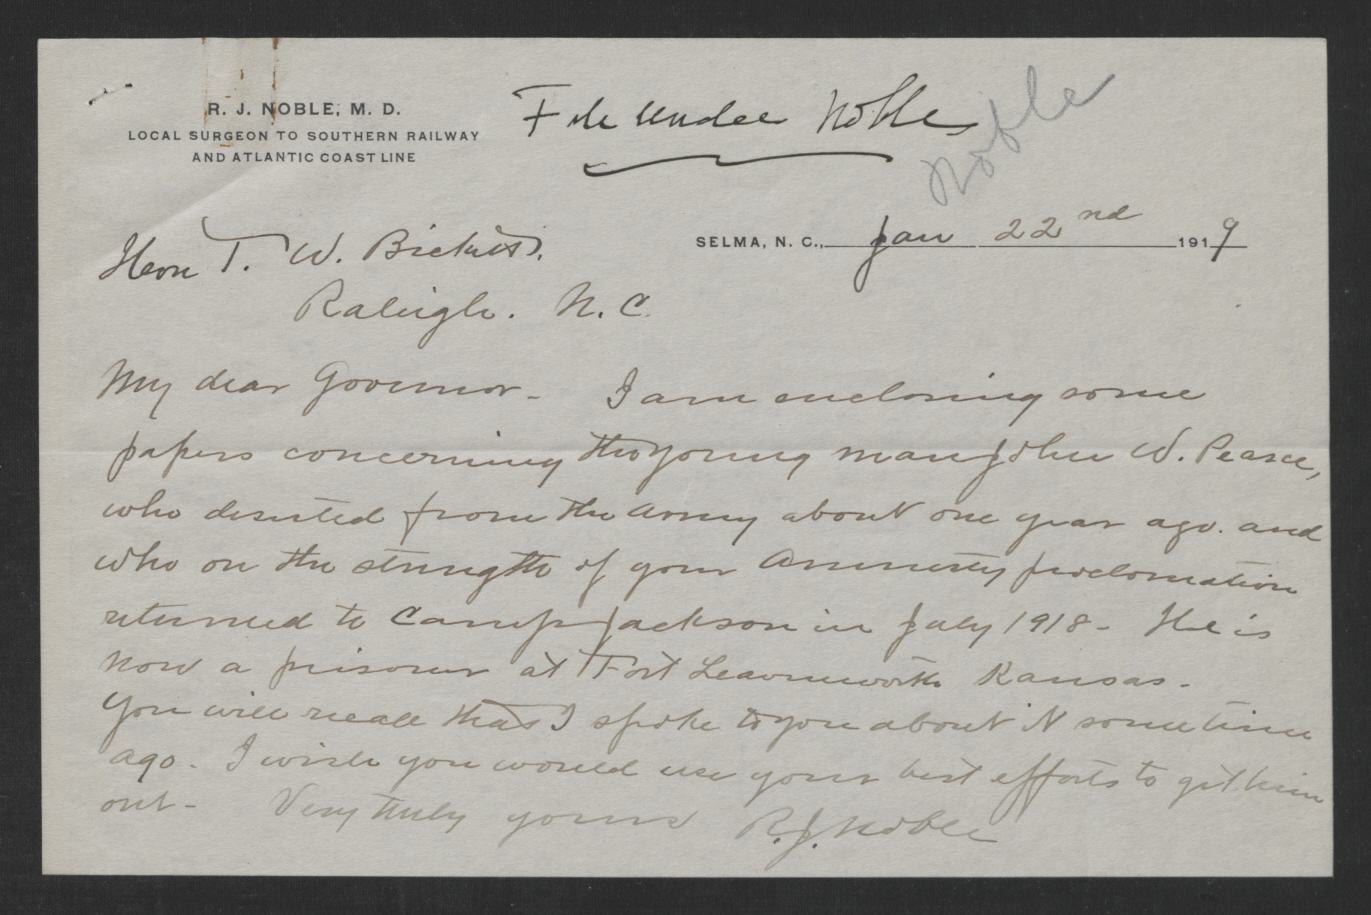 R. J. NOBLE, M. D.
LOCAL SURGEON TO SOUTHERN RAILWAY
AND ATLANTIC COAST LINE
File Under Noble
Noble
SELMA, N. C., Jan 22nd 1919
Hon T. W. Bickett.
Raleigh. N. C.
My dear Governor - I am enclosing some
papers concerning the young man John W. Pearce,
who deserted from the army about one year ago. and
who on the strength of your Amnesty proclomation
returned to Camp Jackson in July 1918 - He is
now a prisoner at Fort Leavenworth Kansas -
You will recall that I spoke to you about it sometime
ago - I wish you would use your best efforts to get him
out - Very truly yours R. J. Noble